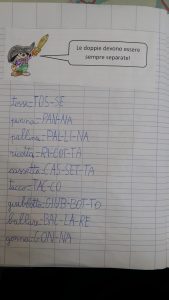 Le doppie devono essere
sempre separate!
tosse=TOS-SE
panna=PAN-NA
pallina=PAL-LI-NA
ricotta=RI-COT-TA
cassetta=CAS-SET-TA
tacco=TAC-CO
giubbotto=GIUB-BOT-TO
ballare=BAL-LA-RE
gonna=GON-NA